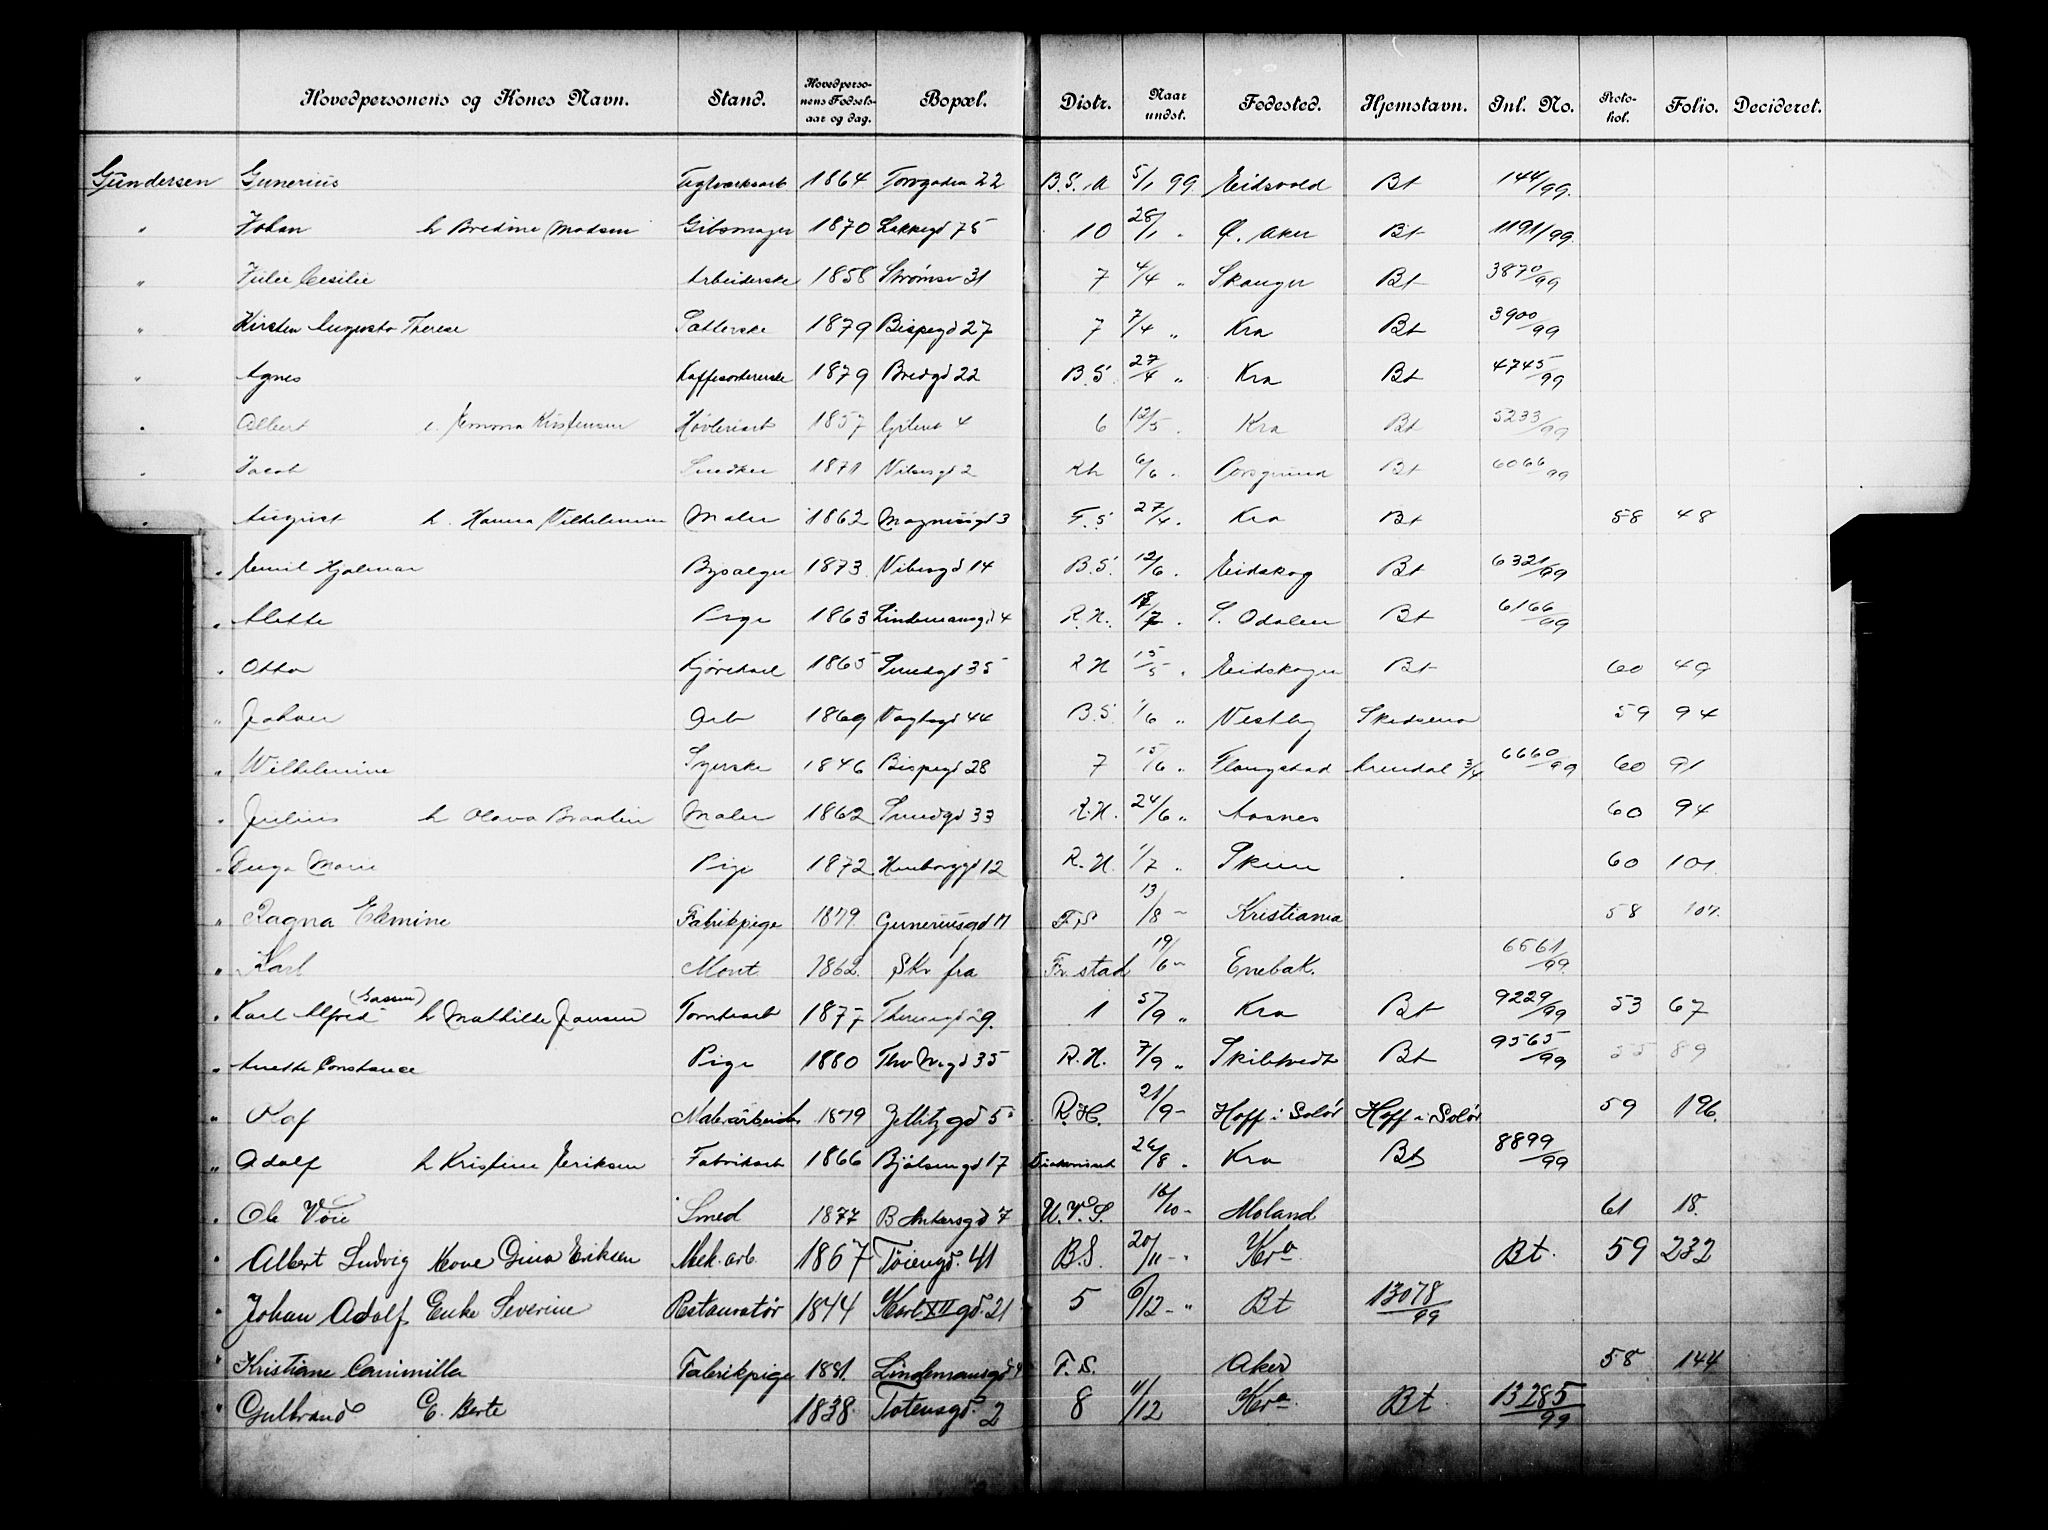 Hovedpersonens og Kones Navn. Stand. Hovedperso-nens Fødsels-aar og dag. Bopæl. Distr. Naar undst. Fødested. Hjemstavn. Inl. No. Proto-kol. Folio. Decideret.
Gundersen Gunerius Teglværksarb 1864 Torvgaden 22 B.S. A 5/1 99 Eidsvold Bt 144/99.
" Johan h Bredine Madsen Gibsmager 1870 Lakkegd 75 10 28/1 " Ø. Aker Bt 1191/99.
" Julie Cecilie Arbeiderske 1858 Strømsv 31 7 4/4 " Skauger Bt 3870/99
" Kirsten Augusta Therese Satlerske 1879 Bispegd 27 7 7/4 " Kra Bt 3900/99
" Agnes Kaffesortererske 1879 Bredgd 22 B.S. 27/4 " Kra Bt 4745/99
" Albert e. Emma Kristensen Høvleriarb 1857 4 6 12/5 " Kra Bt 5233/99
" Jacob Snedker 1871 Vibesgd 2 Rh 6/6 " Porsgrund Bt 6066/99
" August h. Hanna Vilhelmine Maler 1862 Magnusgd 3 F.S. 27/4 " Kra Bt 58 48
" Emil Hjalmar Bysælger 1873 Vibesgd 14 B.S. 12/6 " Eidskog Bt 6321/99
" Alette Pige 1863 Lindemansgd 4 R.H. /7 " S. Odalen Bt 6166/99
" Otto Kjørekarl 1865 Smedgd 35 R H 15/5 " Eidskogen Bt 60 49
" Johan Arb 1869 Vogtsgd 44 B.S. 1/6 " Vestby Skedsmo 59 94
" Wilhelmine Syerske 1846 Bispegd 28 7 15/6 " Flangstad Arendal 3/4 6660/99 60 91
" Julius h Olava Braaten Maler 1862 Smedgd 33 R.H. 24/6 " Aasnes 60 94
" Inga Marie Pige 1872 12 R.H. 1/7 " Skien 60 101.
" Ragna Elmine Fabrikpige 1879. Guneriusgd 11 F.S 13/8 - Kristiania 58 107.
" Karl Mont. 1862. Skr fra Fr. stad 19/6 - Enebak. 6561/99.
" Karl Alfred h Mathilde Jansen Tomtearb 1877 Theresgd 29. 1 5/9 " Kra Bt 9229/99 53 67
" Anette Constance Pige 1880 Thv Megd 35 R.H. 7/9 " Skibtvedt Bt 9565/99 55 89
" Olaf Malerarbeider 1879 Zetlitzgd 5 R.H. 21/9 - Hoff i Solør Hoff i Solør 59 196.
" Adolf h Kristine Eriksen Fabrikarb 1866 Bjølsengd 17 26/8 " Kra Bt 8899/99
" Ole Voie Smed 1877 B Ankersgd 7 U.V.S. 16/10 - Moland 61 18.
" Albert Ludvig Kone Dina Eriksen Mek. arb. 1867 Tøiengd. 41 B.S. 20/11 - " Kra. Bt. 59 232
" Johan Adolf Enke Severine Restauratør 1844 Karl XII gd. 21 5 6/12 - " Bt 13078/99
" Kristiane Cammilla Fabrikpige 1881. Lindemansgd F.S. Aker 58 144
" Gulbrand E. Berte 1838. Totensgd. 2 8 11/12 Kra. Bt. 13285/99